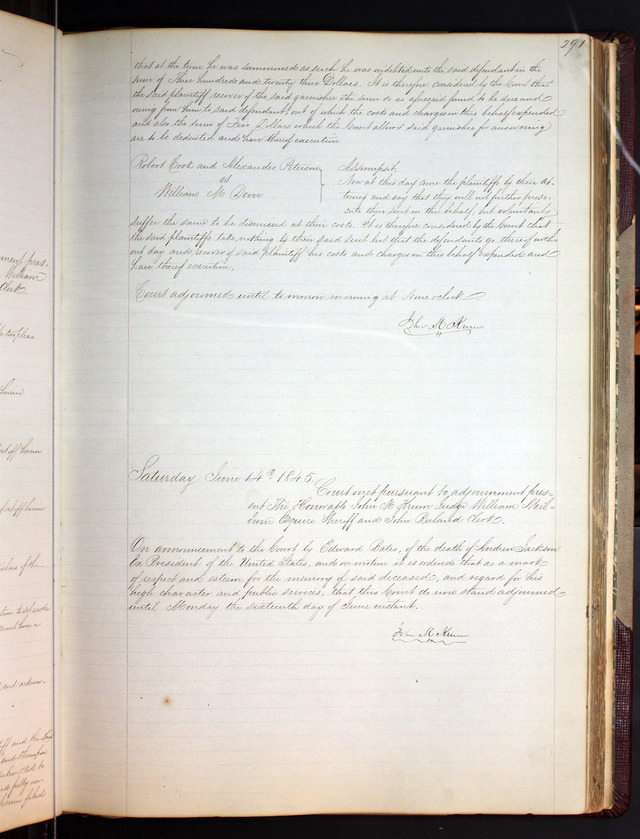 291
that at the time he was summoned as such he was indebted unto the said defendant in the
sum of Three hundred and twenty three Dollars. It is therefore considered by the Court that
the said plaintiff recover of the said garnishee the sum as aforesaid found to be due and
owing from him to said defendant, out of which the costs and charges in this behalf expended
and also the sum of Five Dollars which the Court allows said garnishee for answering
are to be deducted and have thereof execution
Robert Cook and Alexander Peterson
vs
William M
Assumpsit,
Now at this day come the plaintiffs by their at-
torney and say that they will not further prose-
cute their suit in this behalf, but voluntarily
suffer the same to be dismissed at their costs. It is therefore considered by the Court that
the said plaintiffs take nothing by their said suit but that the defendant go thereof with-
out day and recover of said plaintiff his costs and charges in this behalf expended and
have thereof execution.
Court adjourned until to morrow morning at Nine oclock
John M Krum
Saturday June 14th 1845.
Court met pursuant to adjournment pres-
ent The Honorable John M Krum Judge William Mil-
burn Esquire Sheriff and John Ruland Clerk.
On announcement to the Court by Edward Bates, of the death of Andrew Jackson
Ex President of the United States, and on motion it is ordered that as a mark
of respect and esteem for the memory of said deceased, and regard for his
high character and public services, that this Court do now stand adjourned
until Monday the sixteenth day of June instant.
John M Krum
ment pres-
William
Clerk.
herein
tiff herein
of the
and the
submitted to
herein filed